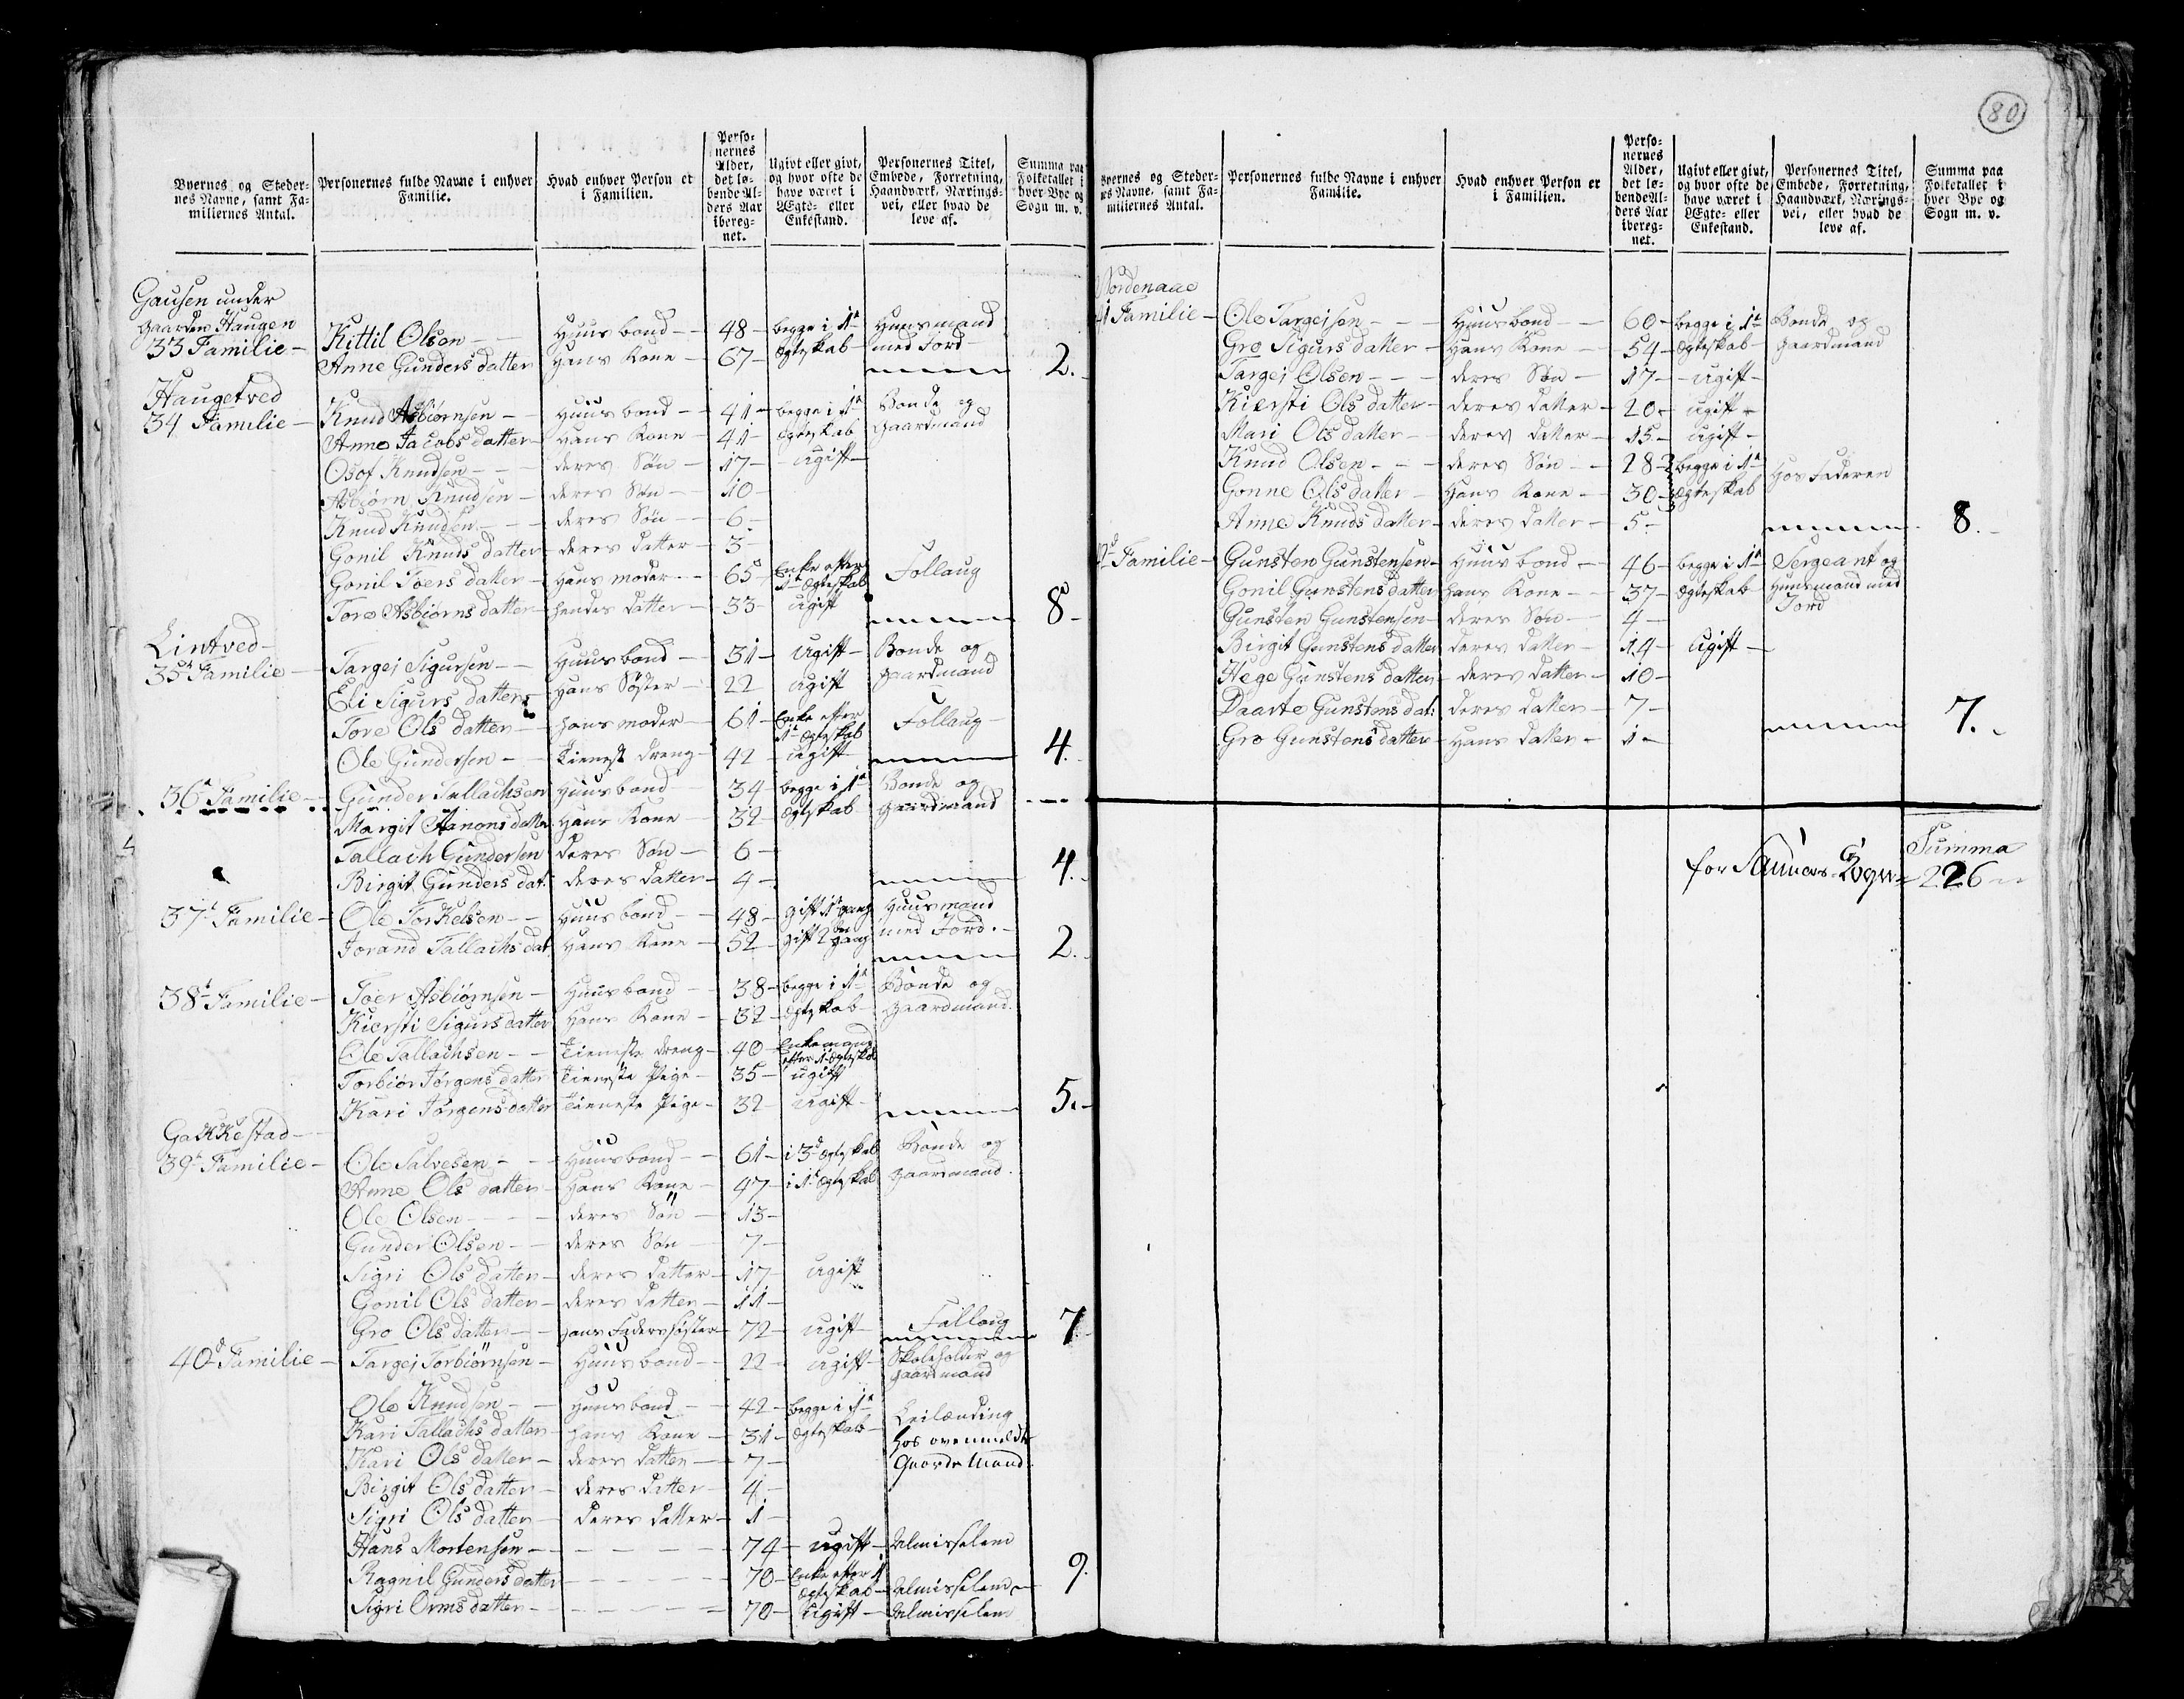 80
Byernes og Steder-
nes Navne, samt Fa-
miliernes Antal.
Personernes fulde Navne i enhver
Familie.
Hvad enhver Person er
i Familien.
Perso-
nernes
Alder,
det lø-
bende Al-
ders Aar
ibereg-
net.
Ugivt eller givt,
og hvor ofte de
have været i
Ægte- eller
Enkestand.
Personernes Titel,
Embede, Forretning,
Haandværk, Nærings-
vei, eller hvad de
leve af.
Summa paa
Folketallet i
hver Bye og
Sogn m. v.
Gausen under
Gaarden Haugen
33 Familie - Kittil Olsen - Huusbond - 48 - begge i 1te Huusmand
Anne Gunders datter Hans Kone - 67 - Ægteskab - med Jord - 2.
Haugetved
34 Familie - Knud Asbiørnsen - Huusbond - 41 - begge i 1te Bonde og
Anne Jacobs datter - Hans Kone - 41 - Ægteskab Gaardmand
Osof Knudsen - deres Søn - 17 - ugift -
Asbiørn Knudsen - deres Søn - 10 -
Knud Knudsen - deres Søn - 6 -
Gonil Knuds datter - deres datter - 3 -
Gonil Toers datter - Hans moder - 65 - Enke efter Follaug
1te Ægteskab
Tore Asbiørns datter - hendes datter - 33 - ugift 8 -
Lintved -
35te Familie - Targej Sigursen - Huusbond - 31 - ugift - Bonde og
Eli Sigurs datter - Hans Søster - 22 ugift Gaardmand
Tore Ols datter - Hans moder - 61 - Enke efter Follaug -
1te Ægteskab
Ole Gundersen - Tieneste dreng - 42 - ugift 4.
36te Familie - Gunder Tallachsen Huusbond 34 - begge i 1te Bonde og
Margit Aanons datter Hans Kone 32 Ægteskab Gaardmand
Tallach Gundersen deres Søn - 6 -
Birgit Gunders dat: deres datter - 4 - 4.
37te Familie - Ole Torkelsen - Huusbond - 48 - gift 1te gang Huusmand
Jorand Tallachs dat. Hans Kone - 52 - gift 2den gang med Jord. - 2.
38te Familie - Toer Asbiørnsen - Huusbond - 38 - begge i 1te Bonde og
Kiersti Sigurs datter Hans Kone - 32 - Ægteskab - Gaardmand.
Ole Tallachsen - Tieneste dreng - 40 - Enkemand
efter 1te Ægteskab
Torbiør Jørgens datter Tieneste Pige - 35 - ugift
Kari Jørgens datter Tieneste Pige - 32 - ugift - 5. -
Gakkestad -
39te Familie - Ole Salvesen - Huusbond - 61 - i 3de Ægteskab Bonde og
Anne Ols datter - Hans Kone - 47 - i 1te Ægteskab Gaardmand.
Ole Olsen - deres Søn - 13 -
Gunder Olsen - deres Søn 7 -
Sigri Ols datter - deres datter - 17 - ugift
Gonil Ols datter - deres datter - 11 -
Gro Ols datter - Hans Faders søster - 72 - ugift - Follaug 7
40de Familie - Targej Torbiørnsen - Huusbond - 22 - ugift - Skoleholder og
Gaardmand
Ole Knudsen - Huusbond - 42 - begge i 1te Leilænding
Kari Tallachs datter - Hans Kone - 31 - Ægteskab - hos ovenmeldte
Kari Ols datter - deres datter - 7 - Gaards Mand.
Birgit Ols datter - deres datter - 4 -
Sigri Ols datter - deres datter - 1
Hans Mortensen - 74 - ugift - Almisselem
Ragnil Gunders datter - 70 - Enke efter 1te
Ægteskab - Almisselem - 9.
Sigri Orms datter - 70 - ugift - Almisselem
Byernes og Steder-
nes Navne, samt Fa-
miliernes Antal.
Personernes fulde Navne i enhver
Familie.
Hvad enhver Person er
i Familien.
Perso-
nernes
Alder,
det lø-
bende Al-
ders Aar
ibereg-
net.
Ugivt eller givt,
og hvor ofte de
have været i
Ægte- eller
Enkestand.
Personernes Titel,
Embede, Forretning,
Haandværk, Nærings-
vei, eller hvad de
leve af.
Summa paa
Folketallet i
hver Bye og
Sogn m. v.
Nordenaae
41 Familie - Ole Targeisen - Huusbond - 60 - begge i 1te Bonde og
Gro Sigurs datter - Hans Kone - 54 - Ægteskab - Gaardmand
Targej Olsen - deres Søn - 17 - ugift -
Kiersti Ols datter - deres datter - 20 - ugift -
Mari Ols datter - deres datter - 15 - ugift -
Knud Olsen - deres Søn - 28 - begge i 1te Hos Faderen
Gonne Ols datter - Hans Kone - 30 - Ægteskab
Anne Knuds datter - deres datter - 5 - 8.
2de Familie - Gunsten Gunstensen - Huusbond - 46 - begge i 1te Sergeant og
Gonil Gunstens datter Hans Kone - 37 - Ægteskab - Huusmand med
Jord
Gunsten Gunstensen - deres Søn - 4 -
Birgit Gunstens datter deres datter - 14 - ugift -
Hege Gunstens datter - deres datter - 10 -
Daarte Gunstens dat: deres datter - 7 -
Gro Gunstens datter - Hans datter - 1 - 7.
Summa
for Sogn - 226